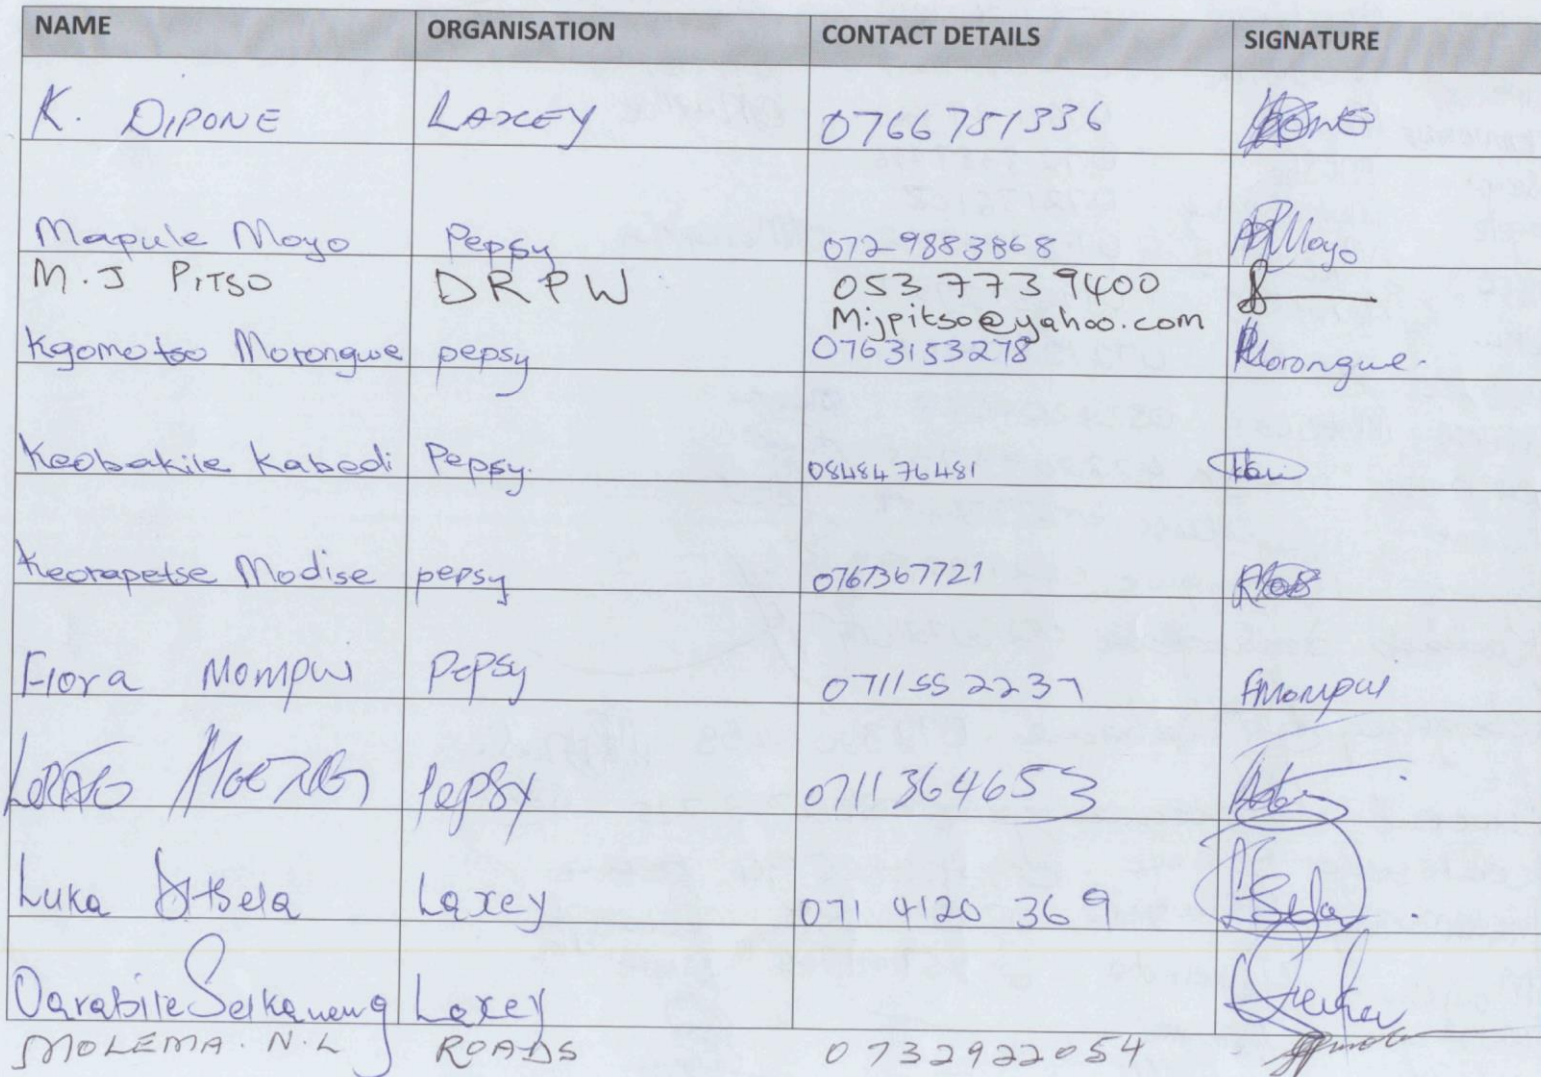 NAME ORGANISATION CONTACT DETAILS SIGNATURE
K. DIPONE LAXEY 0766751336
Mapule Moyo Pepsy 072 9883868 Moyo
M.J PITSO DRPW 053 773 9400
M.jpitso@yahoo.com
Kgomotso Morongwe pepsy 0763153278 Morongwe.
Keobakile Kabedi Pepsy. 0848476481
Keorapetse Modise pepsy 0767367721
Flora Mompui Pepsy 0711552237 FMompui
LORATO pepsy 0711364653
Luka Laxey 071 4120 369
Oarabile Laxey
MOLEMA. N.L ROADS 0732922054